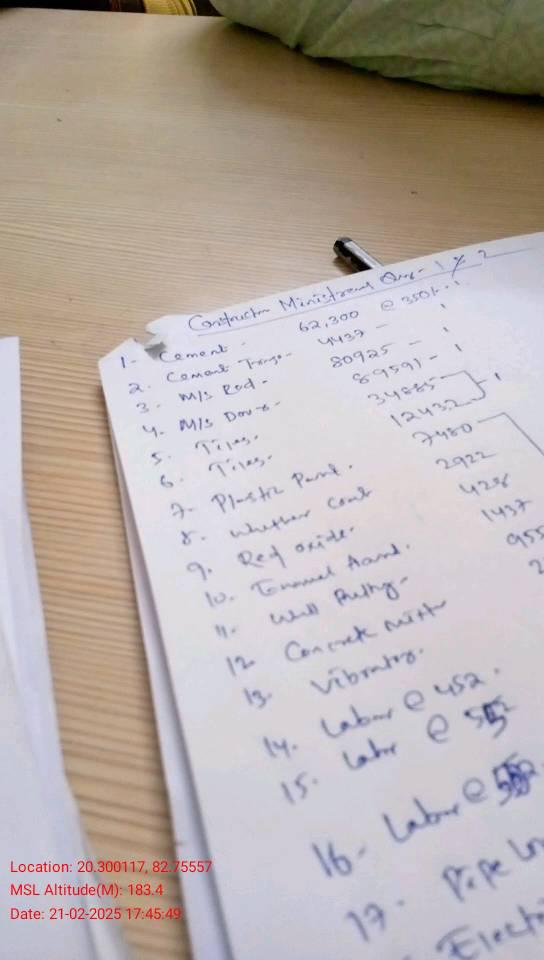 Constructon Ministreal Qrs- 1 % 2
1- Cement - 62,300 @ 350/- 1
2. Cement - 4437 - 1
3. M/s Rod - 80925 - 1
4. M/s Door - 89591 - 1
5. Tiles. 34885
6. Tiles. 12432 - 1
7. Plastic Paint. 7480
8. Whether Coat 2922
9. Red oxide. 428
10. Enamel 1437
11. Wall Putty - 955
12. Concrete mixter
13. Vibrator.
14. Labour @ 452.
15. Labr @
16- Labour @
17. Pipe
Electri
Location: 20.300117, 82.75557
MSL Altitude(M): 183.4
Date: 21-02-2025 17:45:49